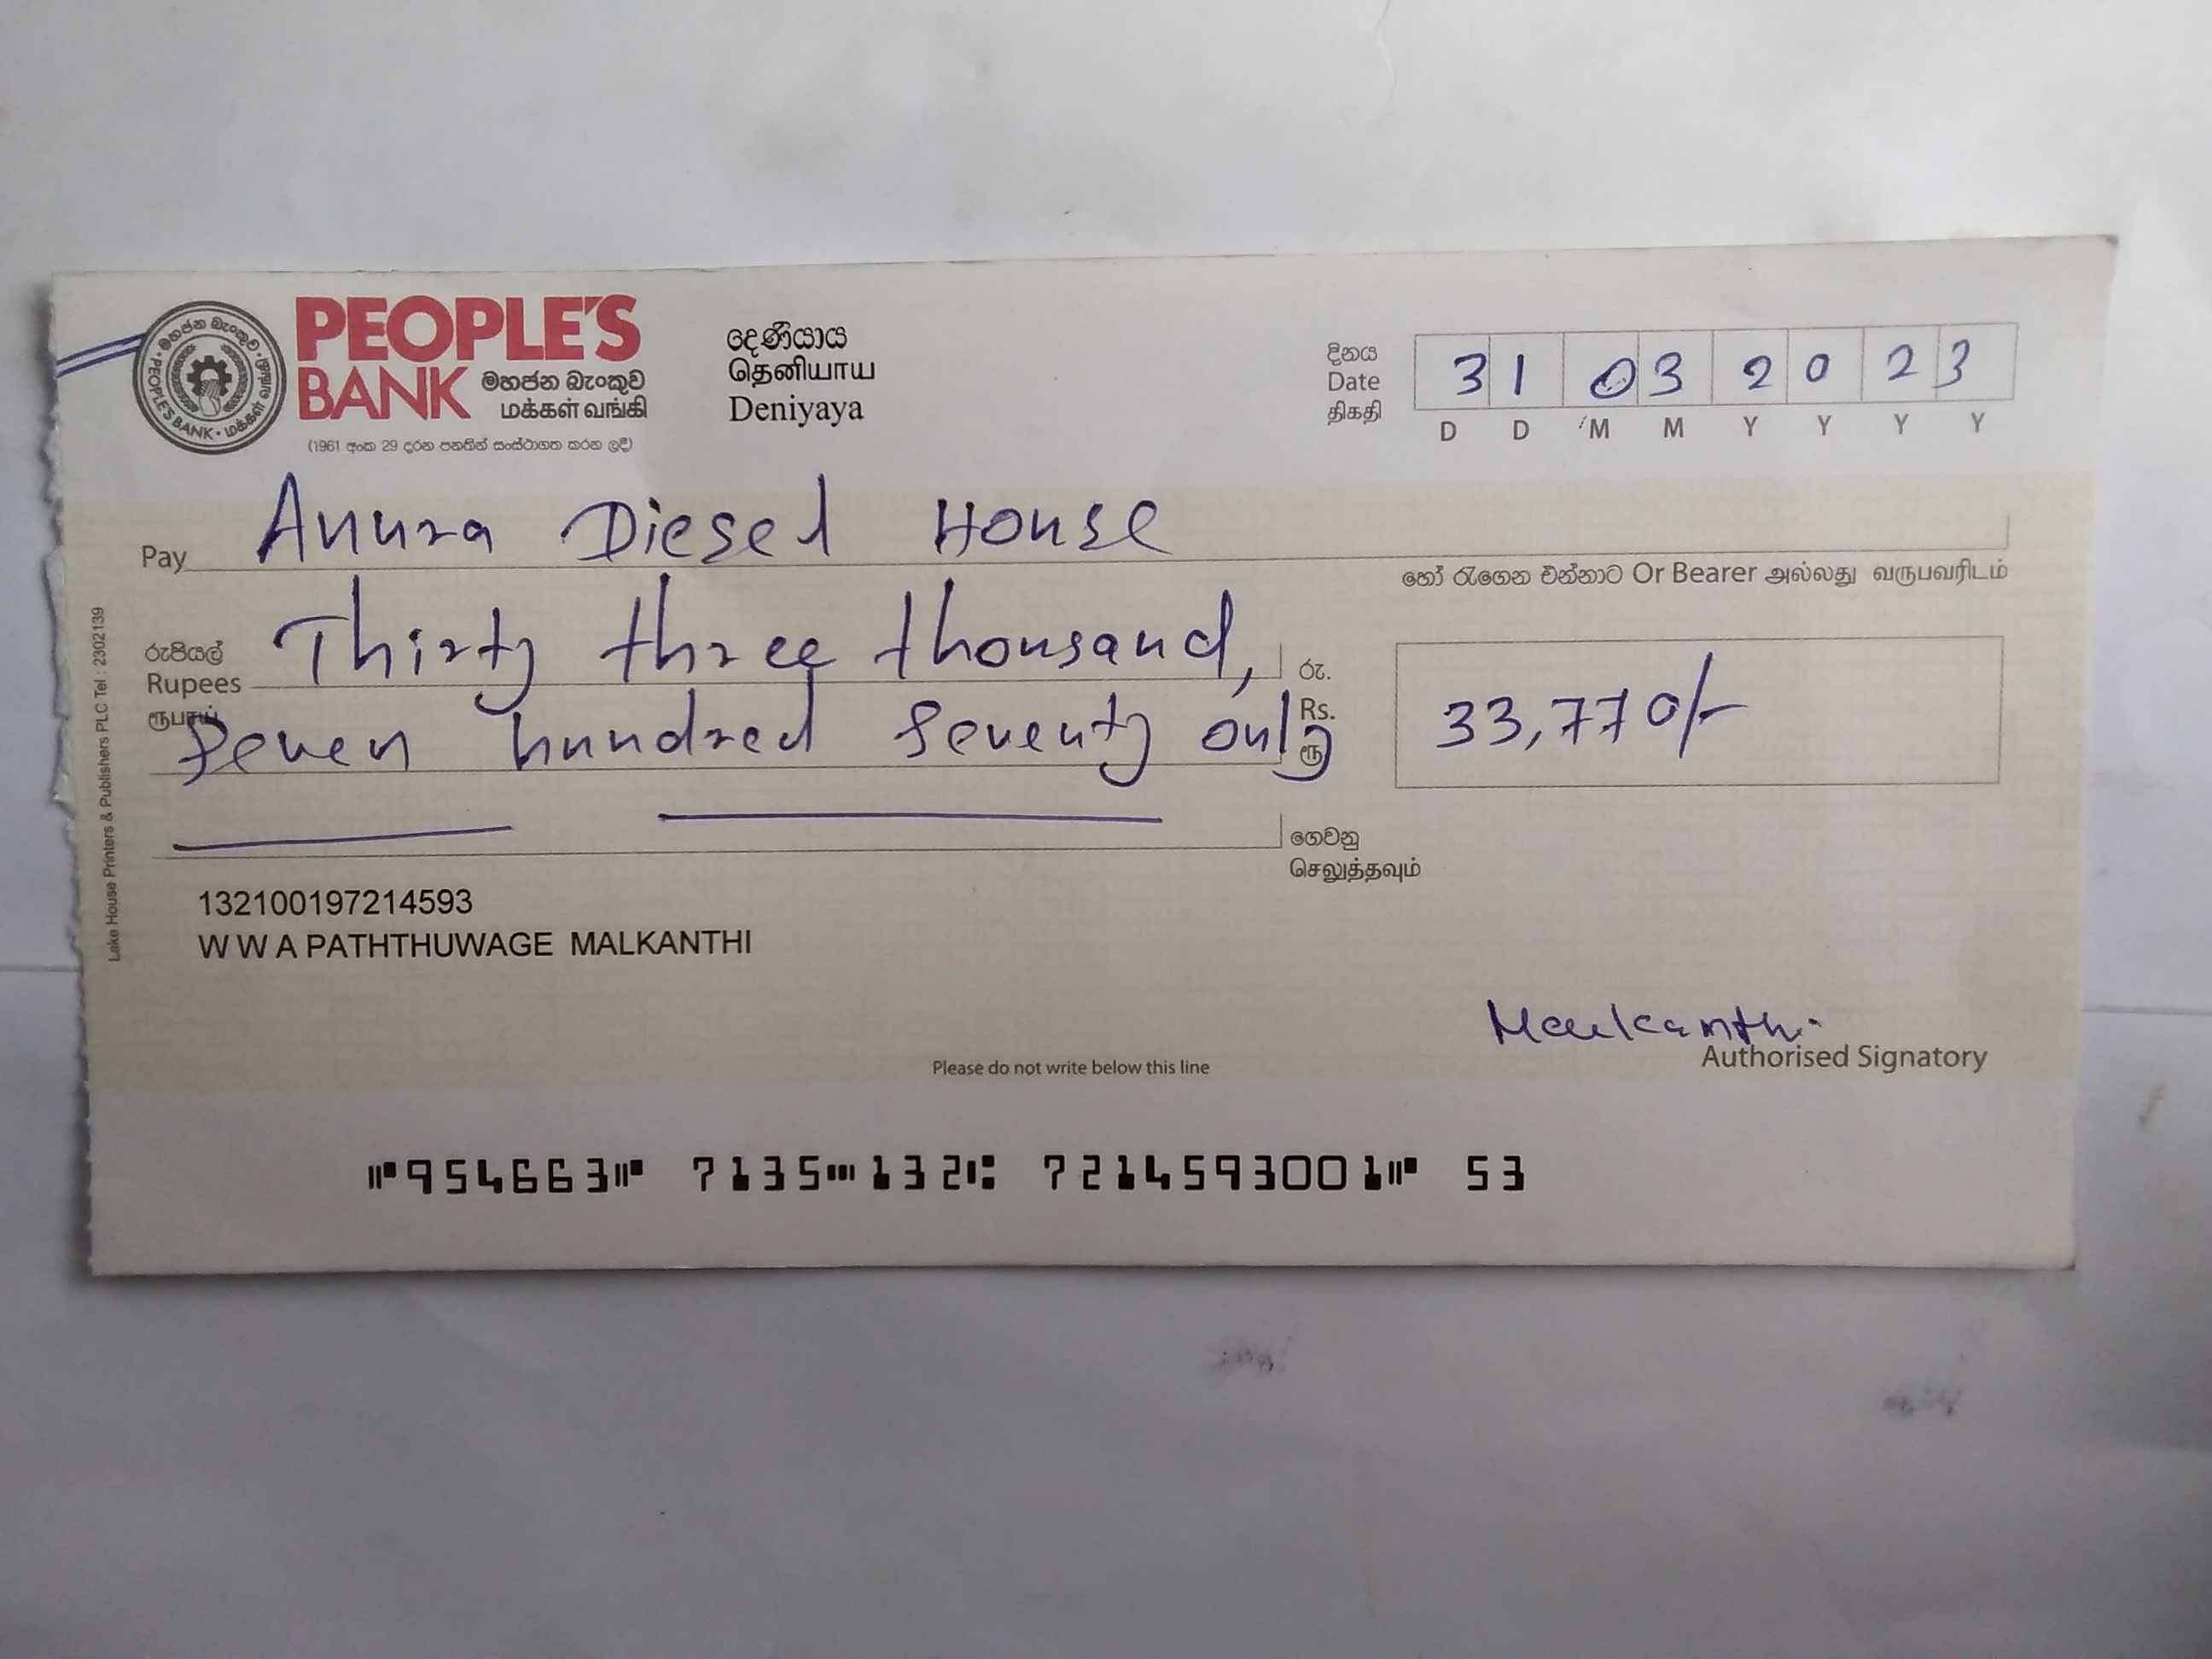 PEOPLE'S
BANK මහජන බැංකුව
மக்கள் வங்கி
(1961 අංක 29 දරන පනතින් සංස්ථාගත කරන ලදි)
මහජන බැංකුව • மக்கள் வங்கி • PEOPLE'S BANK •
දෙණියාය
தெனியாய
Deniyaya
දිනය
Date
திகதி
3 1 0 3 2 0 2 3
D D M M Y Y Y Y
Pay Anura Diesel House
හෝ රැගෙන එන්නාට Or Bearer அல்லது வருபவரிடம்
රුපියල්
Rupees Thirty three thousand,
ரூபாய்
Seven hundred Seventy only
රු.
Rs. 33,770/-
ரூ
ගෙවනු
செலுத்தவும்
132100197214593
W W A PATHTHUWAGE MALKANTHI
Malkanthi
Authorised Signatory
Please do not write below this line
⑈954663⑈ 7135⑉132⑆ 7214593001⑈ 53
Lake House Printers & Publishers PLC Tel : 2302139